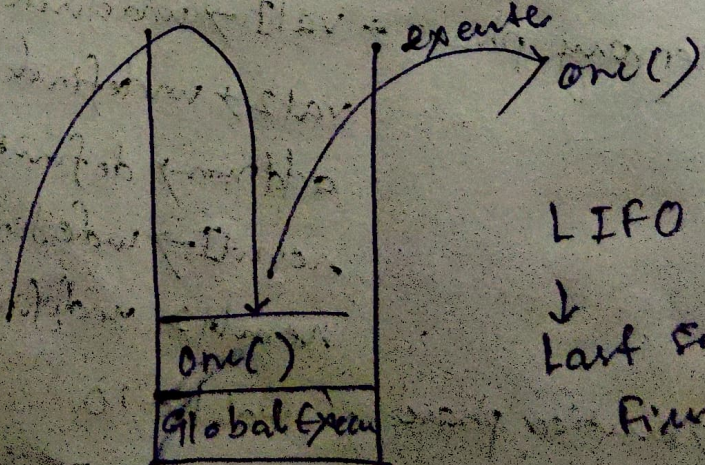 execute
one()
LIFO
↓
Last
one()
Global Execu